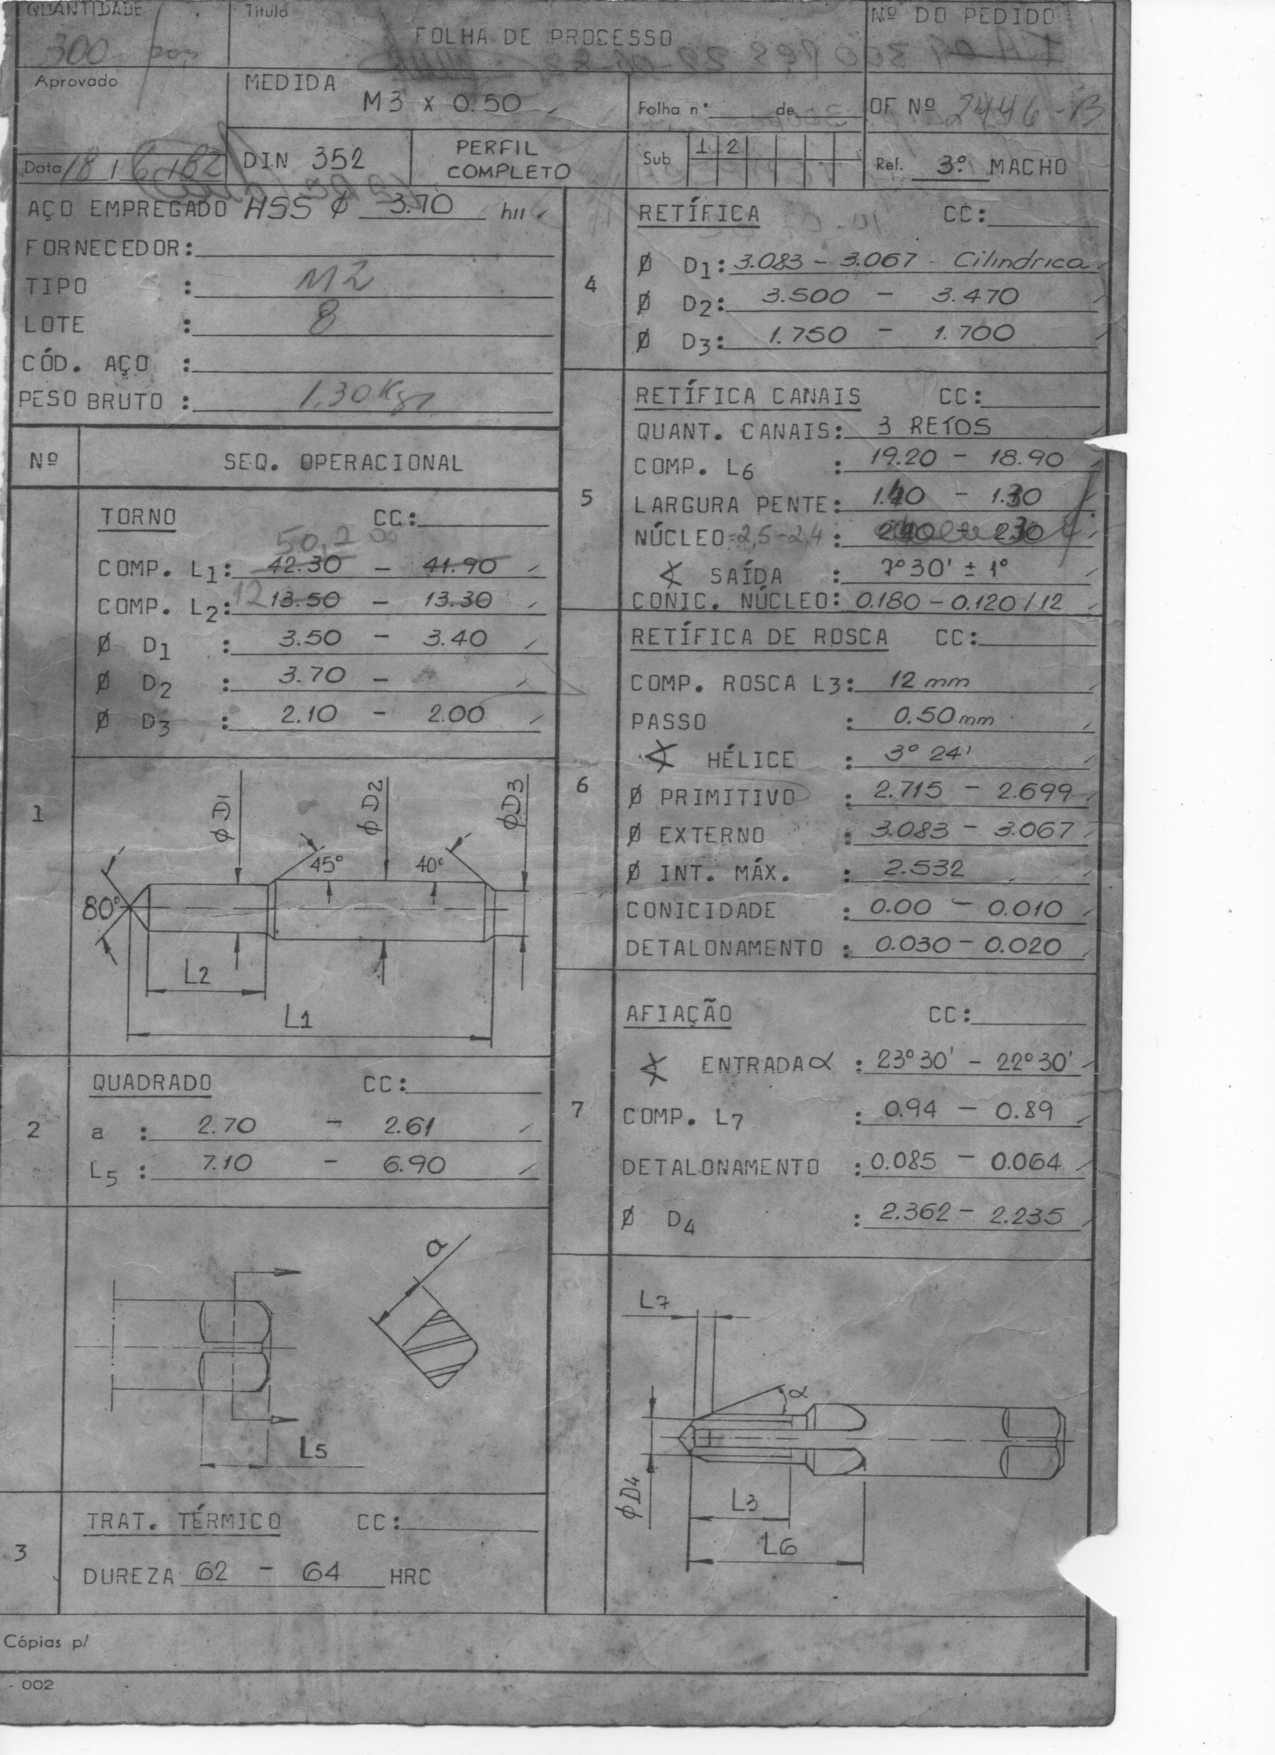 QUANTIDADE
300
Título
FOLHA DE PROCESSO
Nº DO PEDIDO
Aprovado
MEDIDA
M3 x 0.50
Folha nº de
OF Nº 2446-B
Data 18 / 6 / 82
DIN 352
PERFIL
COMPLETO
Sub 1 2
Ref. 3º MACHO
AÇO EMPREGADO HSS Ø 3.70 h11
FORNECEDOR:
TIPO : M2
LOTE : 8
CÓD. AÇO :
PESO BRUTO : 1,30 Kgs
Nº SEQ. OPERACIONAL
1
TORNO CC:
50,2
COMP. L1: 42.30 - 41.90
COMP. L2: 12 13.50 - 13.30
Ø D1 : 3.50 - 3.40
Ø D2 : 3.70 -
Ø D3 : 2.10 - 2.00
ØD1
ØD2
ØD3
45°
40°
80°
L2
L1
2
QUADRADO CC:
a : 2.70 - 2.61
L5 : 7.10 - 6.90
a
L5
3
TRAT. TÉRMICO CC:
DUREZA 62 - 64 HRC
4
RETÍFICA CC:
Ø D1: 3.083 - 3.067 - Cilíndrica
Ø D2: 3.500 - 3.470
Ø D3: 1.750 - 1.700
5
RETÍFICA CANAIS CC:
QUANT. CANAIS: 3 RETOS
COMP. L6 : 19.20 - 18.90
LARGURA PENTE: 1.40 - 1.30
NÚCLEO=2,5-2,4 : 2.40 - 2.30
∢ SAÍDA : 7°30' ± 1°
CONIC. NÚCLEO: 0.180 - 0.120 /12
6
RETÍFICA DE ROSCA CC:
COMP. ROSCA L3: 12 mm
PASSO : 0.50 mm
∢ HÉLICE : 3° 24'
Ø PRIMITIVO : 2.715 - 2.699
Ø EXTERNO : 3.083 - 3.067
Ø INT. MÁX. : 2.532
CONICIDADE : 0.00 - 0.010
DETALONAMENTO : 0.030 - 0.020
7
AFIAÇÃO CC:
∢ ENTRADA α : 23°30' - 22°30'
COMP. L7 : 0.94 - 0.89
DETALONAMENTO : 0.085 - 0.064
Ø D4 : 2.362 - 2.235
L7
α
ØD4
L3
L6
Cópias p/
- 002